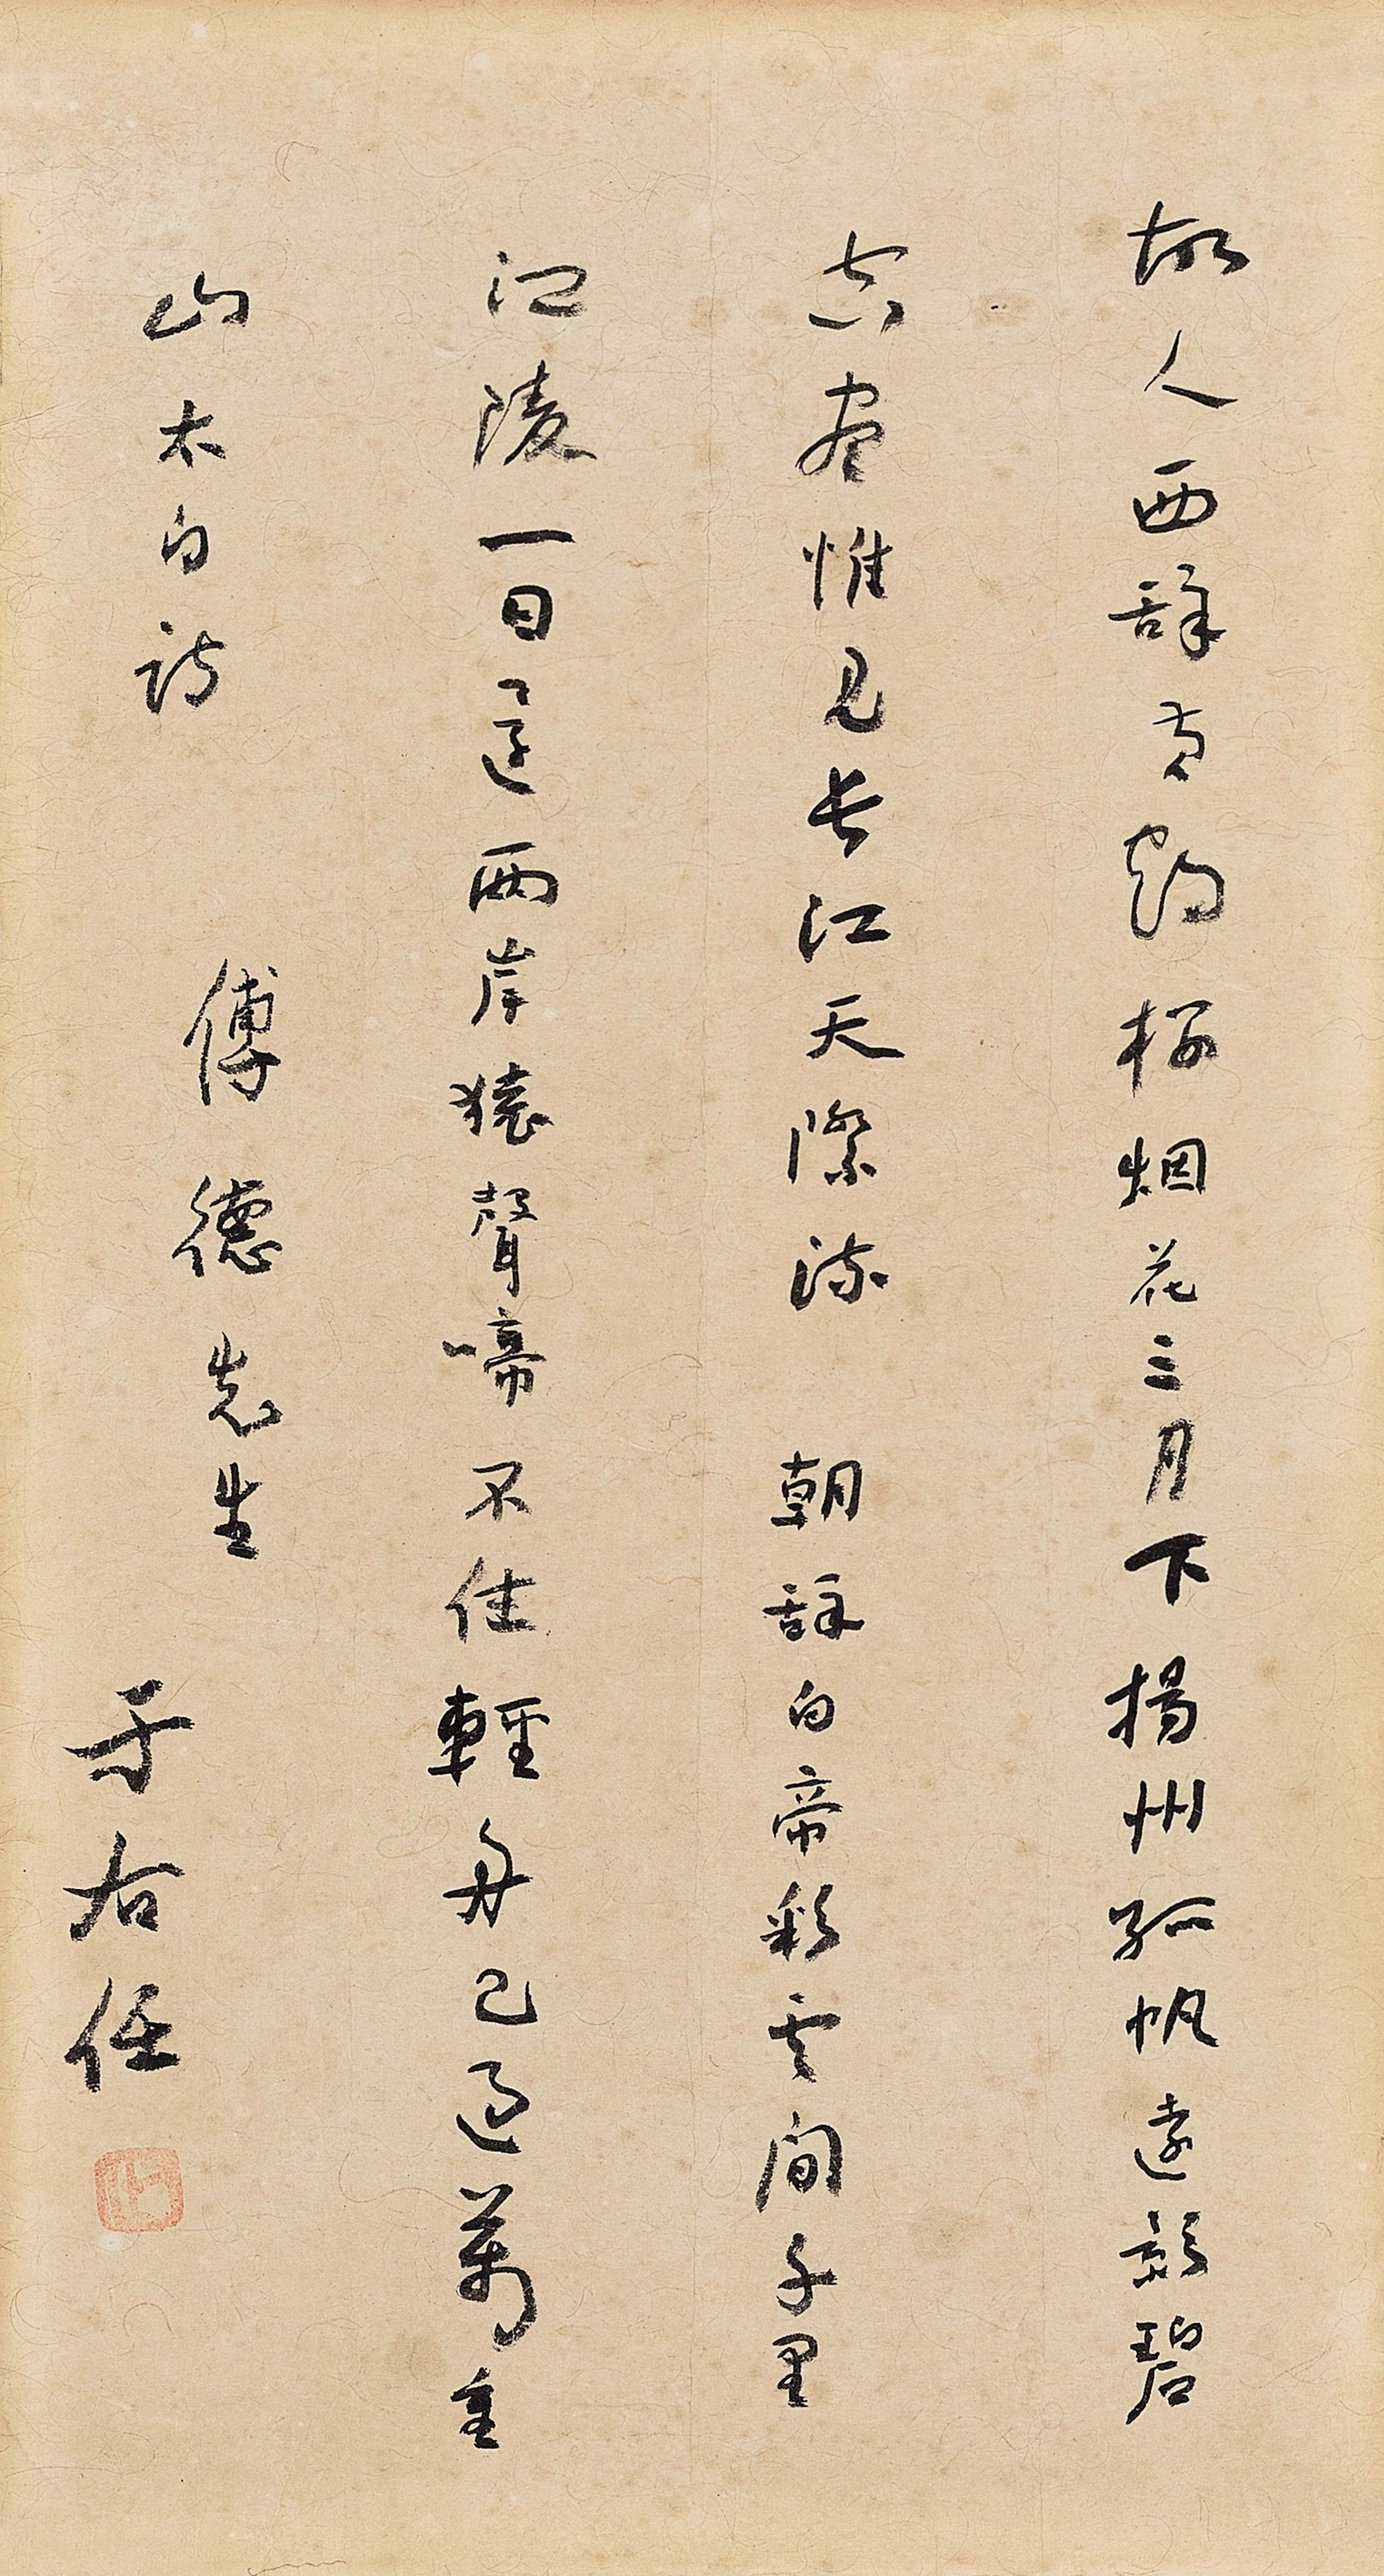 故人西辭黃鶴樓烟花三月下揚州孤帆遠影碧
空盡惟見長江天際流 朝辭白帝彩雲間千里
江陵一日還兩岸猿聲啼不住輕舟已過萬重
山 太白詩
傅德先生
于右任